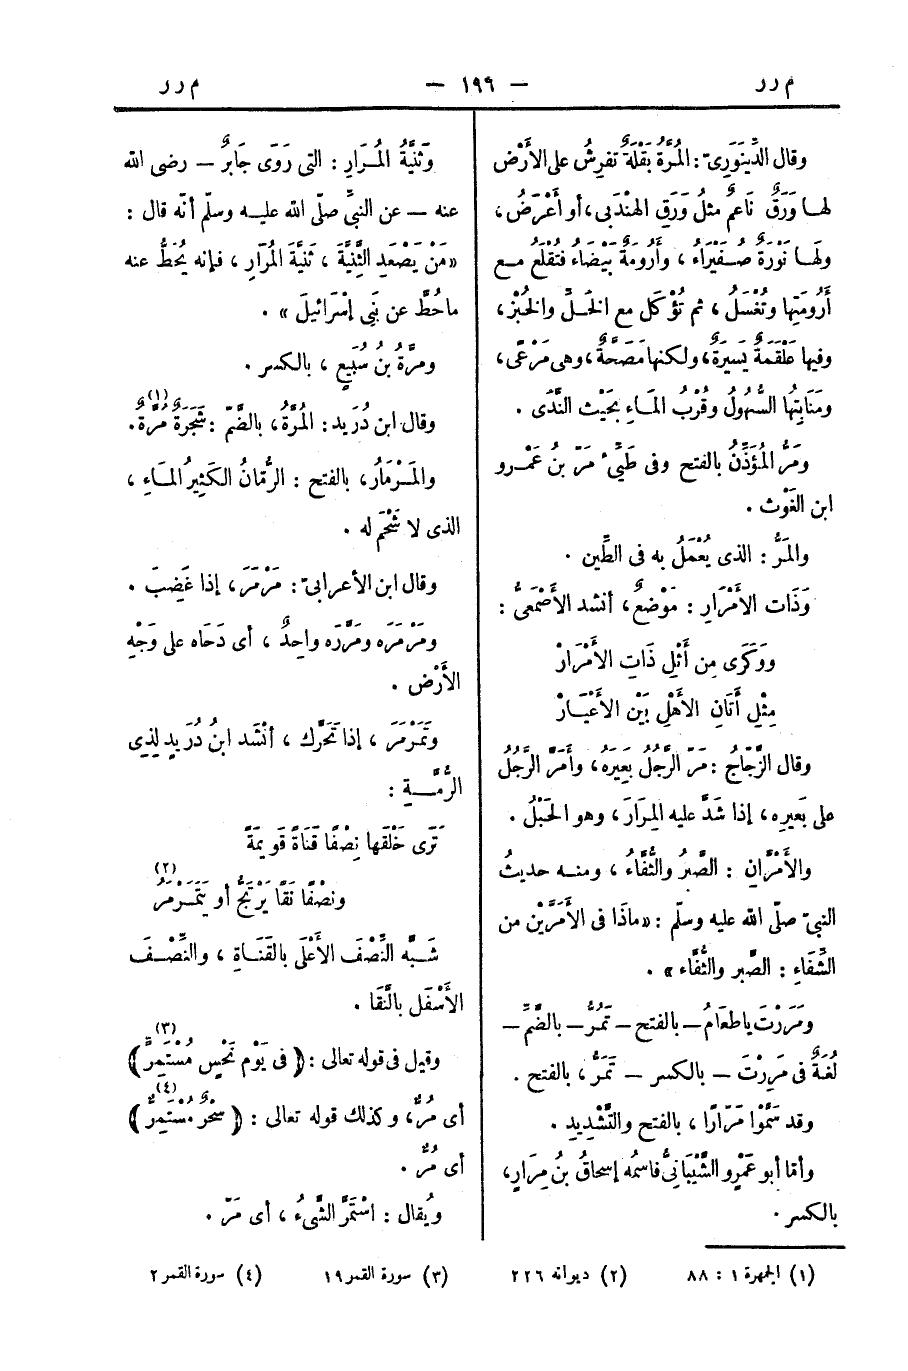 م ر ر — ١٩٦ — م ر ر
وقال الدِّينَوَرِىّ : المُرَّةُ بَقْلَةٌ تَفَرِشُ على الأَرْض
لهـا وَرَقٌ نَاعِمٌ مثلُ وَرَقِ الهِنْدَبَى ، أو أَعْرَضُ ،
ولهـا نَوْرَةٌ صُـفَيْرَاءُ ، وأَرُومَةٌ بَيْضَاءُ فتُقْلَعُ مـع
أَرُومَتِها وتُغْسَلُ ، ثم تُؤْكَل مع الخَـلِّ والخُبْزِ ،
وفيها عَلْقَمَةٌ يَسِيرَةٌ ، ولكنها مَصَحَّةٌ ، وهى مَرْعًى ،
ومَنَابِتُها السُّهُولُ وقُرْبُ المَـاءِ بحَيْث النَّدَى .
ومَرَّ المُؤَذِّنُ بالفتح وفى طَيِّئٍ مَرّ بنُ عَمْـرو
ابن الغَوْث .
والمَرُّ : الذى يُعْمَلُ به فى الطِّين .
وَذَات الأَمْرَارِ : مَوْضِعٌ ، أنشد الأَصْمَعِىُّ :
وَوَكَرَى مِن أَثْلِ ذَاتِ الأَمْرَارْ
مِثْلِ أَتَانِ الأَهْلِ بَيْن الأَعْيَـارْ
وقال الزَّجّاجُ : مَرّ الرَّجُلُ بَعِيرَهُ ، وأَمَرَّ الرَّجُلُ
على بَعِيرِه ، إذا شَدَّ عليه المِرَارَ ، وهو الحَبْلُ .
والأَمَرَّانِ : الصَّبِرُ والثُّفَّاءُ ، ومنـه حديثُ
النبىّ صلّى الله عليه وسلّم : «ماذَا فى الأَمَرَّيْن من
الشِّفَاءِ : الصَّبِر والثُّفَّاء » .
ومَرَرْتَ ياطعَامُ — بالفتح — تَمُرُّ — بالضَّمِّ —
لُغَةٌ فى مَرِرْتَ — بالكسر — تَمَرُّ ، بالفتح .
وقد سَمَّوا مَرّارًا ، بالفتح والتَّشْدِيدِ .
وأمّا أبو عَمْرٍو الشَّيْبَانِىُّ فاسمُه إسحاقُ بنُ مِرَارٍ ،
بالكسرِ .
وثَنِيَّةُ المُـرَارِ : التى رَوَى جَابِرٌ — رضى الله
عنه — عن النبىِّ صلّى الله عليـه وسلّم أنّه قال :
«مَنْ يَصْعَدِ الثَّنِيَّةَ ، ثَنِيَّةَ المُرَارِ ، فـإنه يُحَطُّ عنه
ماحُطَّ عن بَنِى إسْرَائيلَ » .
ومِرَّةُ بنُ سُبَيْعٍ ، بالكسر .
وقال ابن دُرَيد : المُرَّةُ ، بالضَّمّ : شَجَرَةٌ مُرَّةٌ . (١)
والمَـرْمَارُ ، بالفتح : الرُّمّانُ الكَثِيرُ المَـاءِ ،
الذى لا شَحْمَ له .
وقال ابن الأعرابىّ : مَرْمَرَ ، إذا غَضِبَ .
ومَرْمَرَه ومَرَّرَه واحِدٌ ، أى دَحَاه على وَجْهِ
الأَرْض .
وتَمَرْمَرَ ، إذا تَحَرَّك ، أنْشَد ابنُ دُرَيدٍ لِذِى
الرُّمَّـــةِ :
تَرَى خَلْقَها نِصْفًا قَنَاةً قَوِيمَةً
ونِصْفًا نَقًا يَرْتَجُّ أو يَتَمَـرْمَرُ (٢)
شَبَّه النِّصْفَ الأَعْلَى بالقَنَـاةِ ، والنِّصْـفَ
الأَسْفَل بالنَّقَا .
وقيل فى قوله تعالى : ( فى يَوْمِ نَحْسٍ مُسْتَمِرّ ) (٣)
أى مُرٍّ ، وكذلك قوله تعالى : ( سِحْرٌ مُسْتَمِرٌّ ) (٤)
أى مُرٌّ .
ويُقال : اسْتَمَرَّ الشَّىْءُ ، أى مَرّ .
(١) الجمهرة ١ : ٨٨ (٢) ديوانه ٢٢٦ (٣) سورة القمر ١٩ (٤) سورة القمر ٢